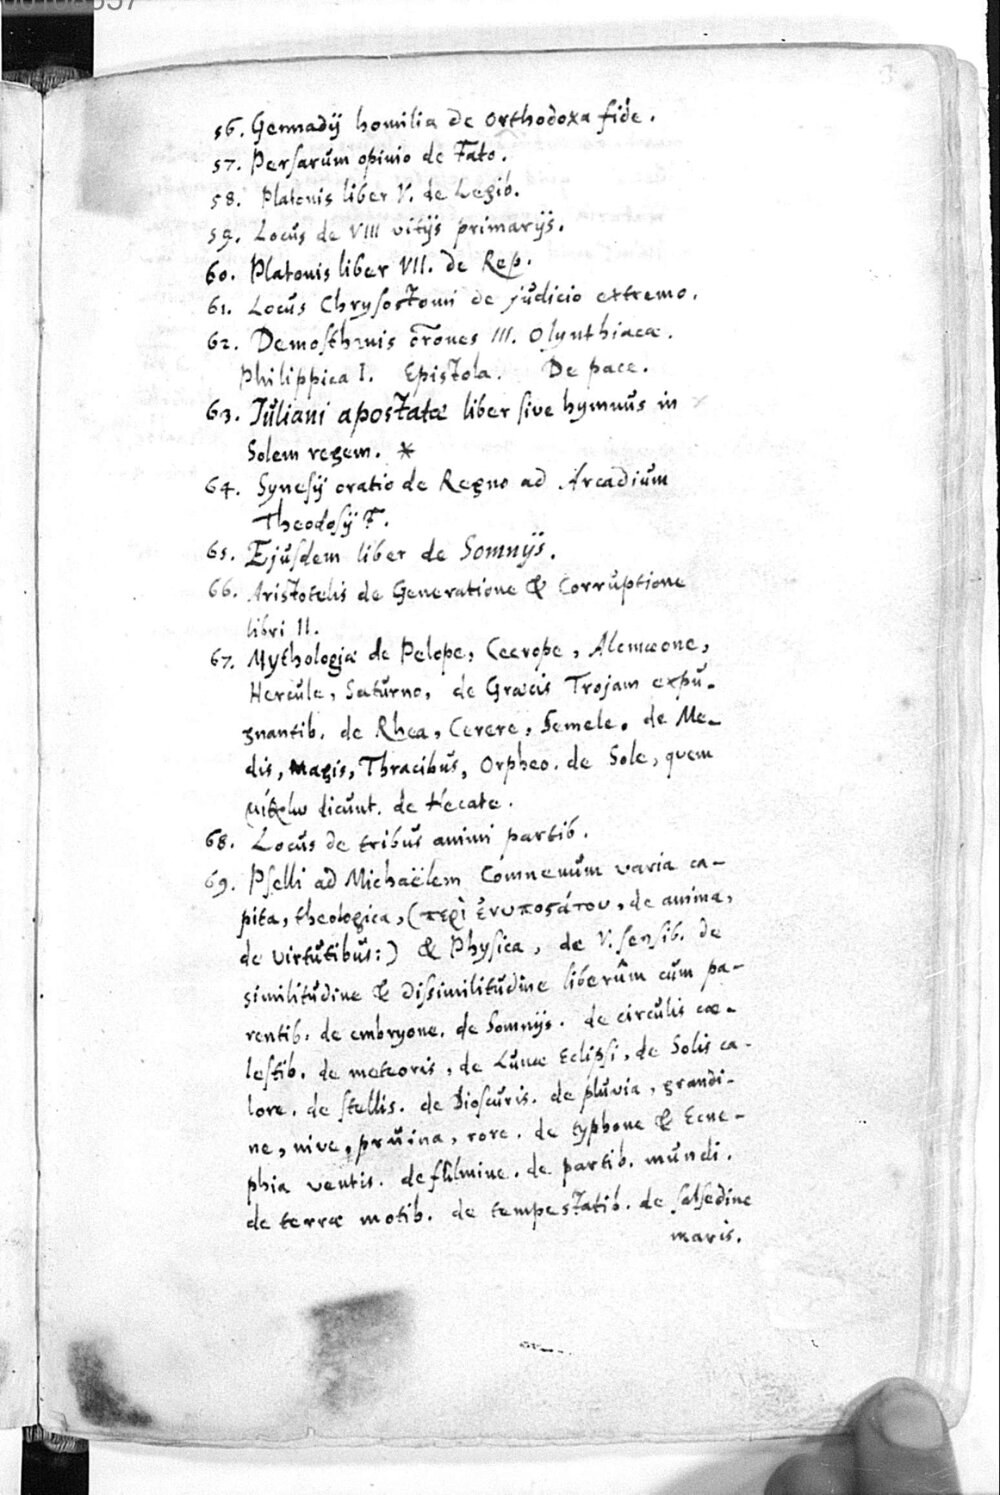 56. Gennadij homilia de Orthodoxa fide.
57. Persarum opinio de Fato.
58. Platonis liber V. de Legib.
59. Locus de VIII vitijs primarijs.
60. Platonis liber VII. de Rep.
61. Locus Chrysostomi de judicio extremo.
62. Demosthenis or͞ones III. Olynthiacæ.
Philippica I. Epistola. De pace.
63. Juliani apostatæ liber sive hymnus in
Solem regem. *
64. Synesij oratio de Regno ad Arcadium
Theodosij F.
65. Ejusdem liber de Somnijs.
66. Aristotelis de Generatione & Corruptione
libri II.
67. Mythologiæ de Pelope, Cecrope, Alcmæone,
Hercule, Saturno, de Græcis Trojam expu-
gnantib. de Rhea, Cerere, Semele. de Me-
dis, Magis, Thracibus, Orpheo. de Sole, quem
dicunt. de Hecate.
68. Locus de tribus animi partib.
69. Pselli ad Michaëlem Comnenum varia ca-
pita, theologica, (περὶ ἐνυποστάτου, de anima,
de virtutibus:) & Physica, de V. sensib. de
similitudine & dissimilitudine liberûm cum pa-
rentib. de embryone. de Somnijs. de circulis cæ-
lestib. de meteoris, de Lunæ Eclipsi, de Solis ca-
lore. de stellis. de Dioscuris. de pluvia, grandi-
ne, nive, pruina, rore. de typhone & Ecne-
phia ventis. de fulmine. de partib. mundi.
de terræ motib. de tempestatib. de salsedine
maris.